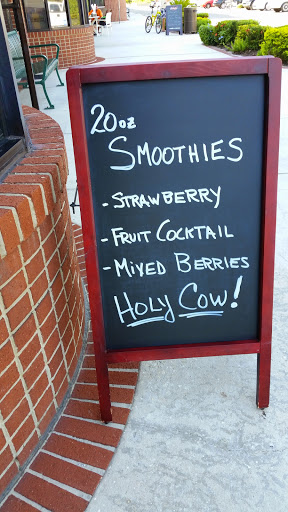 20oz
SMOOTHIES
- STRAWBERRY
- FRUIT COCKTAIL
- MIXED BERRIES
HOLY COW!